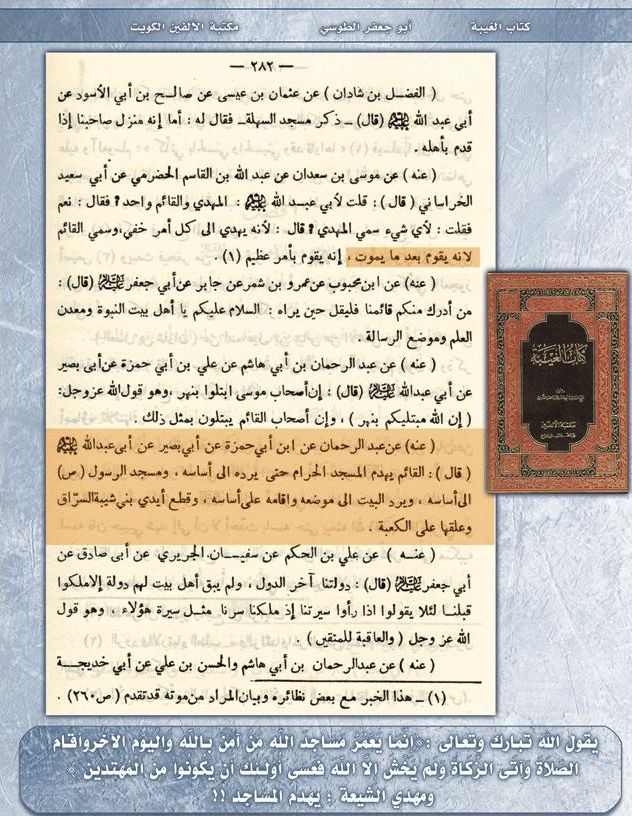 كتاب الغيبة
أبو جعفر الطوسي
مكتبة الألفين الكويت
— ٢٨٢ —
( الفضل بن شاذان ) عن عثمان بن عيسى عن صالح بن أبي الأسود عن
أبي عبد الله عليه السلام (قال) ـ ذكر مسجد السهلة ـ فقال له : أما إنه منزل صاحبنا إذا
قدم بأهله .
( عنه ) عن موسى بن سعدان عن عبد الله بن القاسم الحضرمي عن أبي سعيد
الخراساني ( قال ) : قلت لأبي عبد الله عليه السلام : المهدي والقائم واحد ؟ فقال : نعم
فقلت : لأي شيء سمي المهدي ؟ قال : لأنه يهدى الى كل أمر خفي، وسمي القائم
لانه يقوم بعد ما يموت ، إنه يقوم بأمر عظيم (١) .
( عنه ) عن ابن محبوب عن عمرو بن شمر عن جابر عن أبي جعفر عليه السلام (قال) :
من أدرك منكم قائمنا فليقل حين يراه : السلام عليكم يا أهل بيت النبوة ومعدن
العلم وموضع الرسالة .
( عنه ) عن عبد الرحمان بن أبي هاشم عن علي بن أبي حمزة عن أبى بصير
عن أبي عبدالله عليه السلام (قال) : إن أصحاب موسى ابتلوا بنهر ، وهو قول الله عز وجل :
( إن الله مبتليكم بنهر ) ، وإن أصحاب القائم يبتلون بمثل ذلك .
( عنه ) عن عبد الرحمان عن ابن أبي حمزة عن أبي بصير عن أبى عبدالله عليه السلام
( قال ) : القائم يهدم المسجد الحرام حتى يرده الى أساسه ، ومسجد الرسول (ص)
الى أساسه ، ويرد البيت الى موضعه واقامه على أساسه ، وقطع أيدي بني شيبة السرّاق
وعلقها على الكعبة .
( عنه ) عن علي بن الحكم عن سفيان الجريري عن أبى صادق عن
أبي جعفر عليه السلام (قال) : دولتنا آخر الدول ، ولم يبق أهل بيت لهم دولة إلا ملكوا
قبلنا لئلا يقولوا اذا رأوا سيرتنا إذ ملكنا سرنا مثل سيرة هؤلاء ، وهو قول
الله عز وجل ( والعاقبة للمتقين ) .
( عنه ) عن عبدالرحمان بن أبي هاشم والحسن بن علي عن أبي خديجة
(١) ـ هذا الخبر مع بعض نظائره وبيان المراد من موته قد تقدم ( ص ٢٦٠) .
كتاب الغيبة
مكتبة الألفين
يقول الله تبارك وتعالى : ﴿إنما يعمر مساجد الله من آمن بالله واليوم الآخر وأقام
الصلاة وآتى الزكاة ولم يخش إلا الله فعسى أولئك أن يكونوا من المهتدين ﴾
ومهدي الشيعة : يهدم المساجد !!